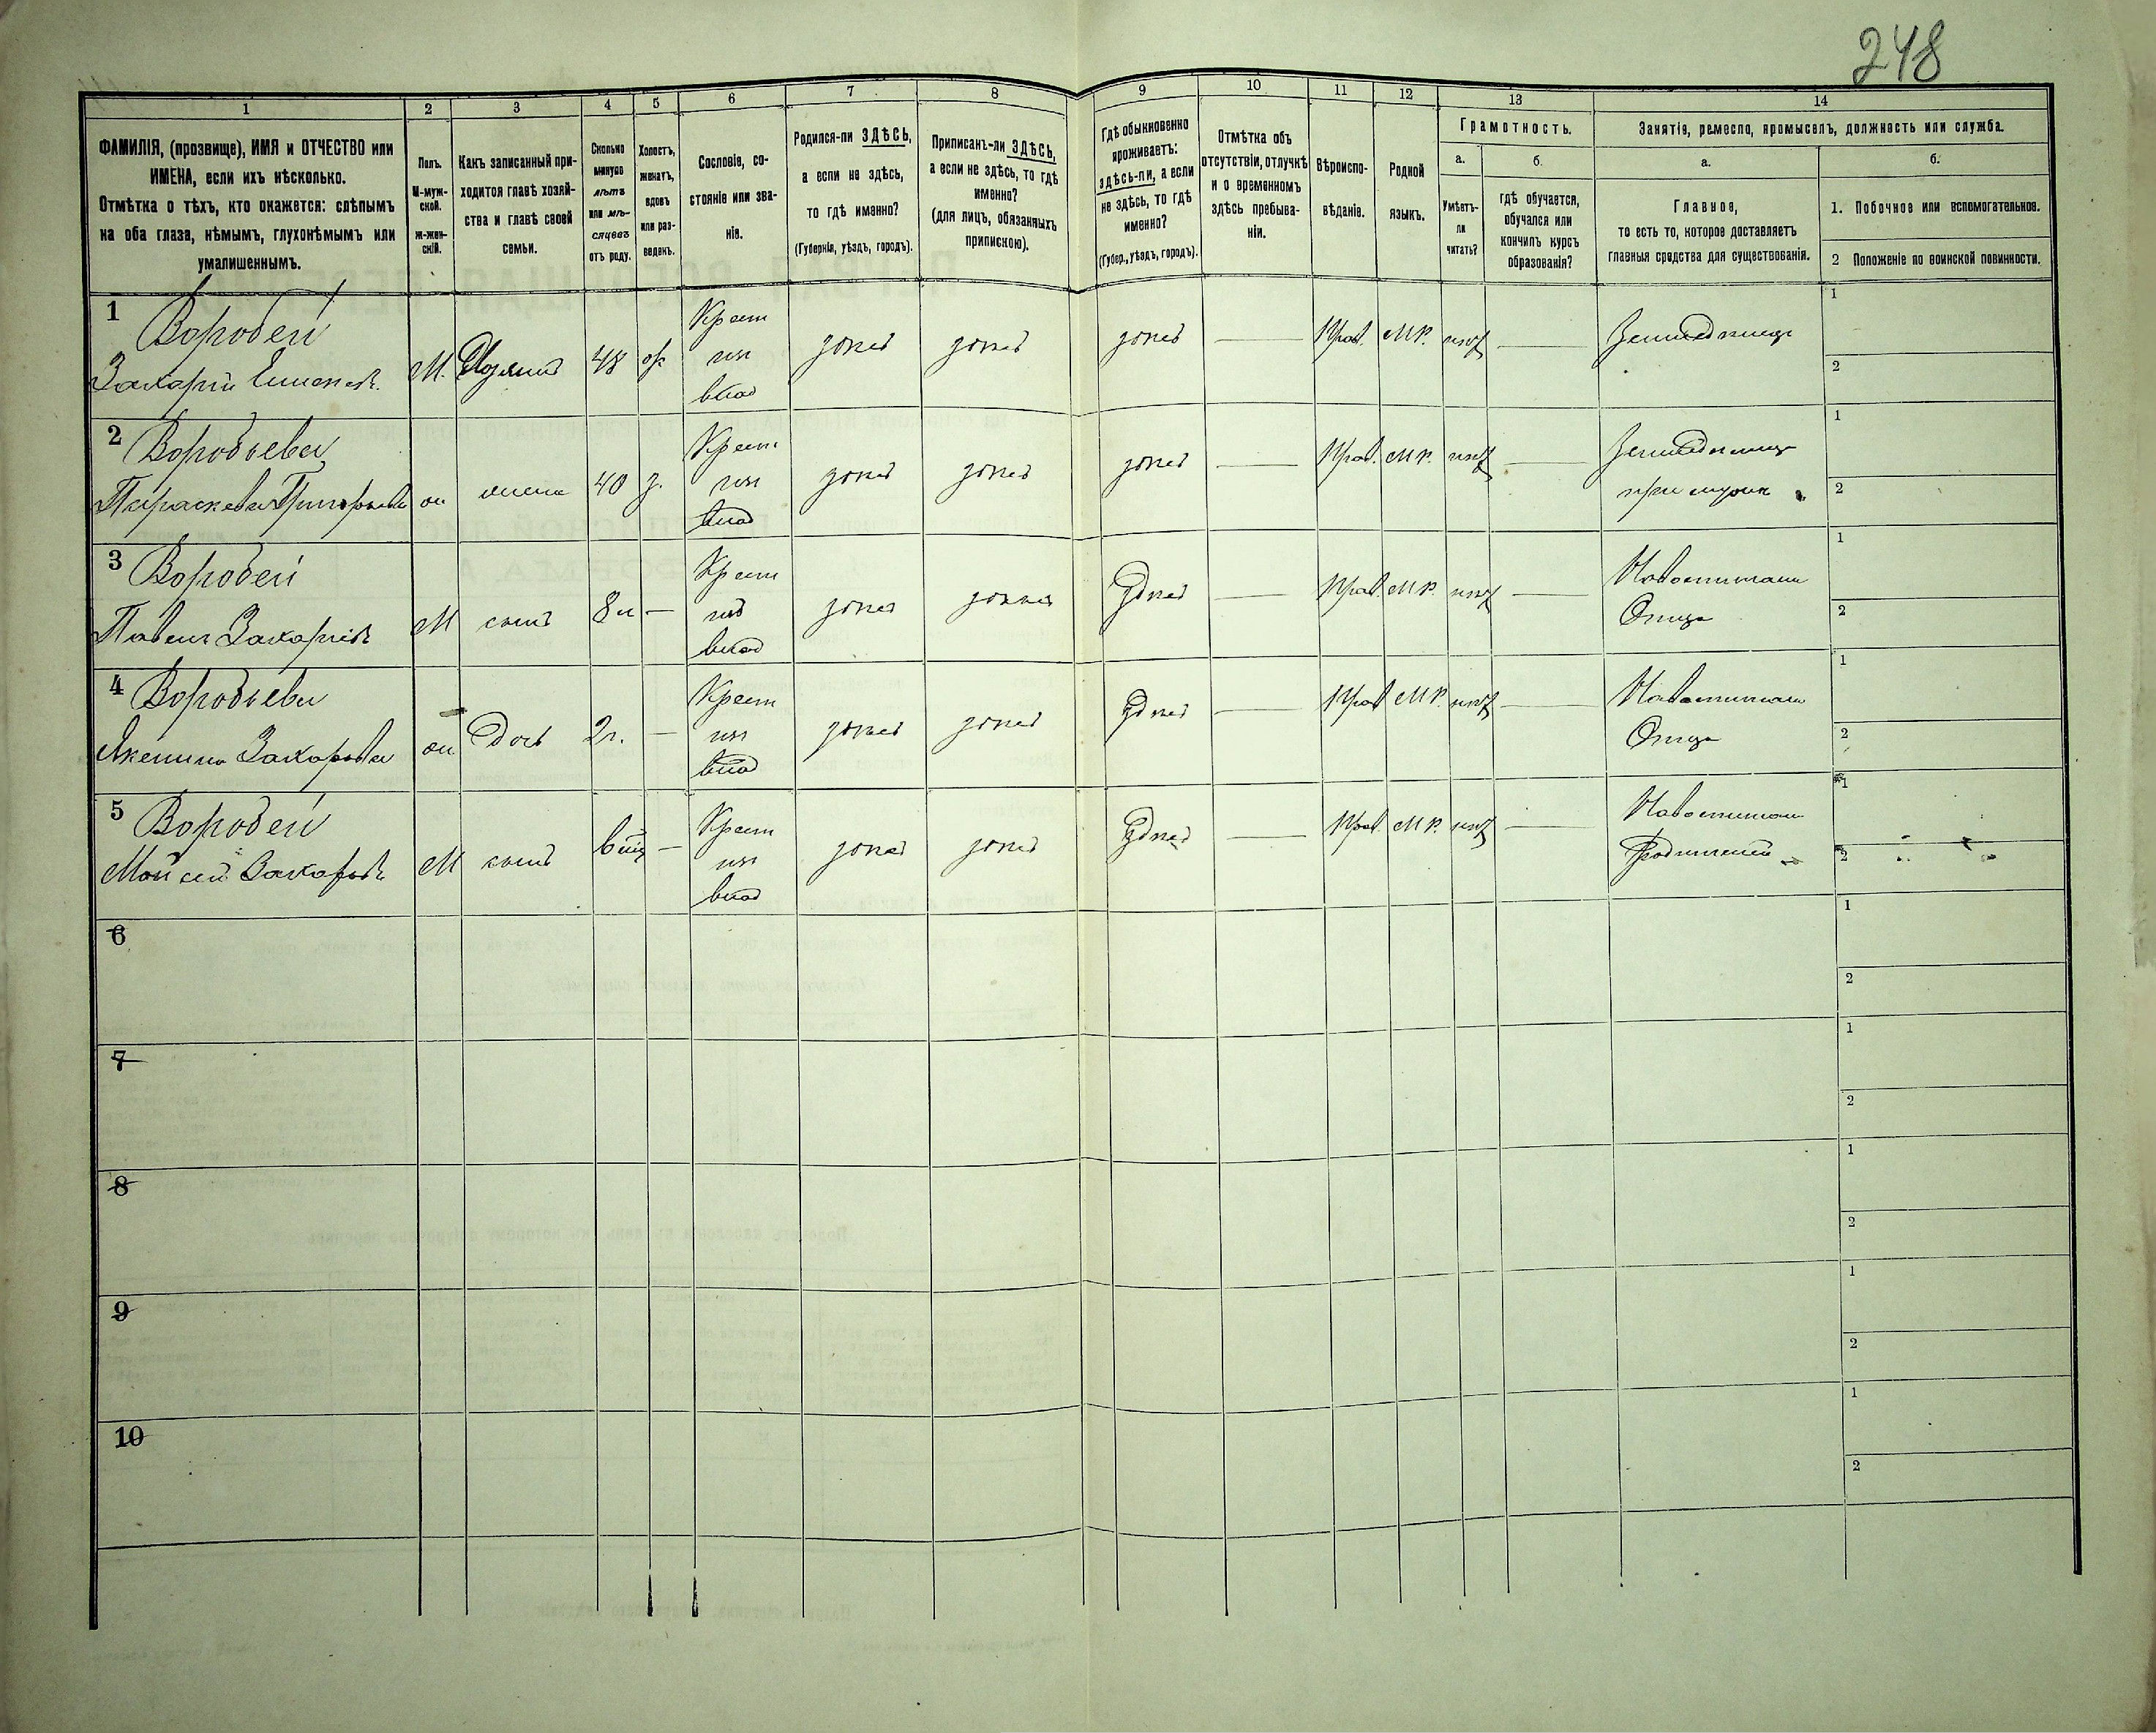 248
1
2
3
4
5
6
7
8
9
10
11
12
13
14
ФАМИЛІЯ, (прозвище), ИМЯ и ОТЧЕСТВО или
ИМЕНА, если ихъ нѣсколько.
Отмѣтка о тѣхъ, кто окажется: слѣпымъ
на оба глаза, нѣмымъ, глухонѣмымъ или
умалишеннымъ.
Полъ.
М-муж-
ской.
ж-жен-
скій.
Какъ записанный при-
ходится главѣ хозяй-
ства и главѣ своей
семьи.
Сколько
минуло
лѣтъ
или мѣ-
сяцевъ
отъ роду.
Холостъ,
женатъ,
вдовъ
или раз-
веденъ.
Сословіе, со-
стояніе или зва-
ніе.
Родился-ли ЗДѢСЬ,
а если не здѣсь,
то гдѣ именно?
(Губернія, уѣздъ, городъ).
Приписанъ-ли ЗДѢСЬ,
а если не здѣсь, то гдѣ
именно?
(для лицъ, обязанныхъ
припискою).
Гдѣ обыкновенно
проживаетъ:
здѣсь-ли, а если
не здѣсь, то гдѣ
именно?
(Губер., уѣздъ, городъ).
Отмѣтка объ
отсутствіи, отлучкѣ
и о временномъ
здѣсь пребыва-
ніи.
Вѣроиспо-
вѣданіе.
Родной
языкъ.
Грамотность.
а.
Умѣетъ-
ли
читать?
б.
гдѣ обучается,
обучался или
кончилъ курсъ
образованія?
Занятіе, ремесло, промыселъ, должность или служба.
а.
Главное,
то есть то, которое доставляетъ
главныя средства для существованія.
б.
1. Побочное или вспомогательное.
2 Положеніе по воинской повинности.
1
Воробей
Захарій
М. Хозяинъ 48 ж
Крест
изъ
влад
здѣсь здѣсь здѣсь — Прав. М.Р. нѣтъ — Земледѣлецъ
1
2
2
Воробьева
Параскева Григорьева
ж жена 40 з.
Крест
изъ
влад
здѣсь здѣсь здѣсь — Прав. М.Р. нѣтъ —
при мужѣ
1
2
3
Воробей
Павелъ
М сынъ 8 л —
Крест
изъ
влад
здѣсь здѣсь здѣсь — Прав. М.Р. нѣтъ —
Отца
1
2
4
Воробьева
Захарова
ж дочь 2 г. —
Крест
изъ
влад
здѣсь здѣсь здѣсь — Прав М.Р. нѣтъ —
Отца
1
2
5
Воробей
Мойсей
М сынъ —
Крест
изъ
влад
здѣсь здѣсь здѣсь — Прав. М.Р. нѣтъ —
Родителей
1
2
6
1
2
7
1
2
8
1
2
9
1
2
10
1
2